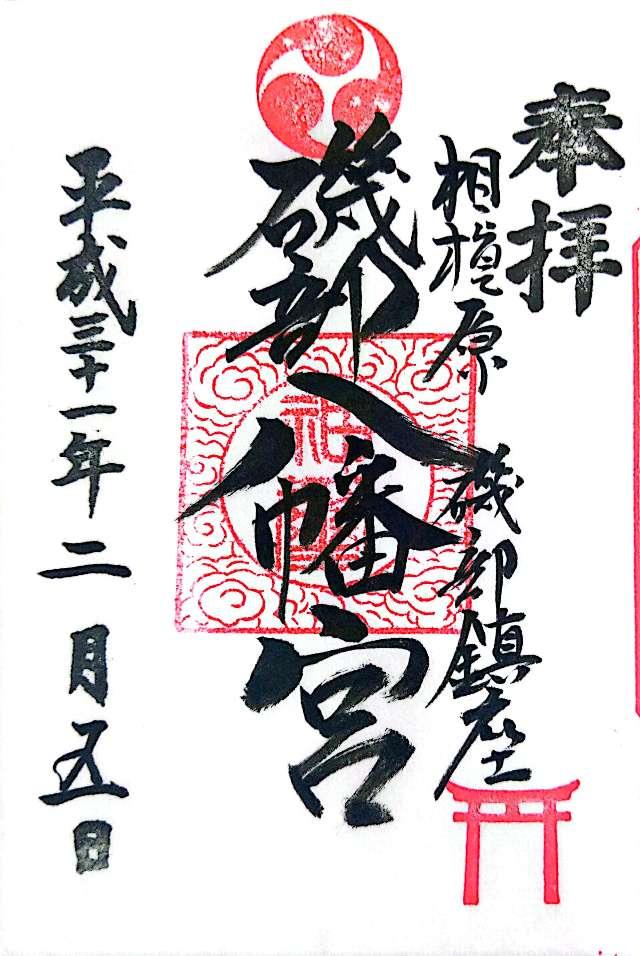 奉拝
相模原
磯部鎮座
磯部八幡宮
平成三十一年二月五日